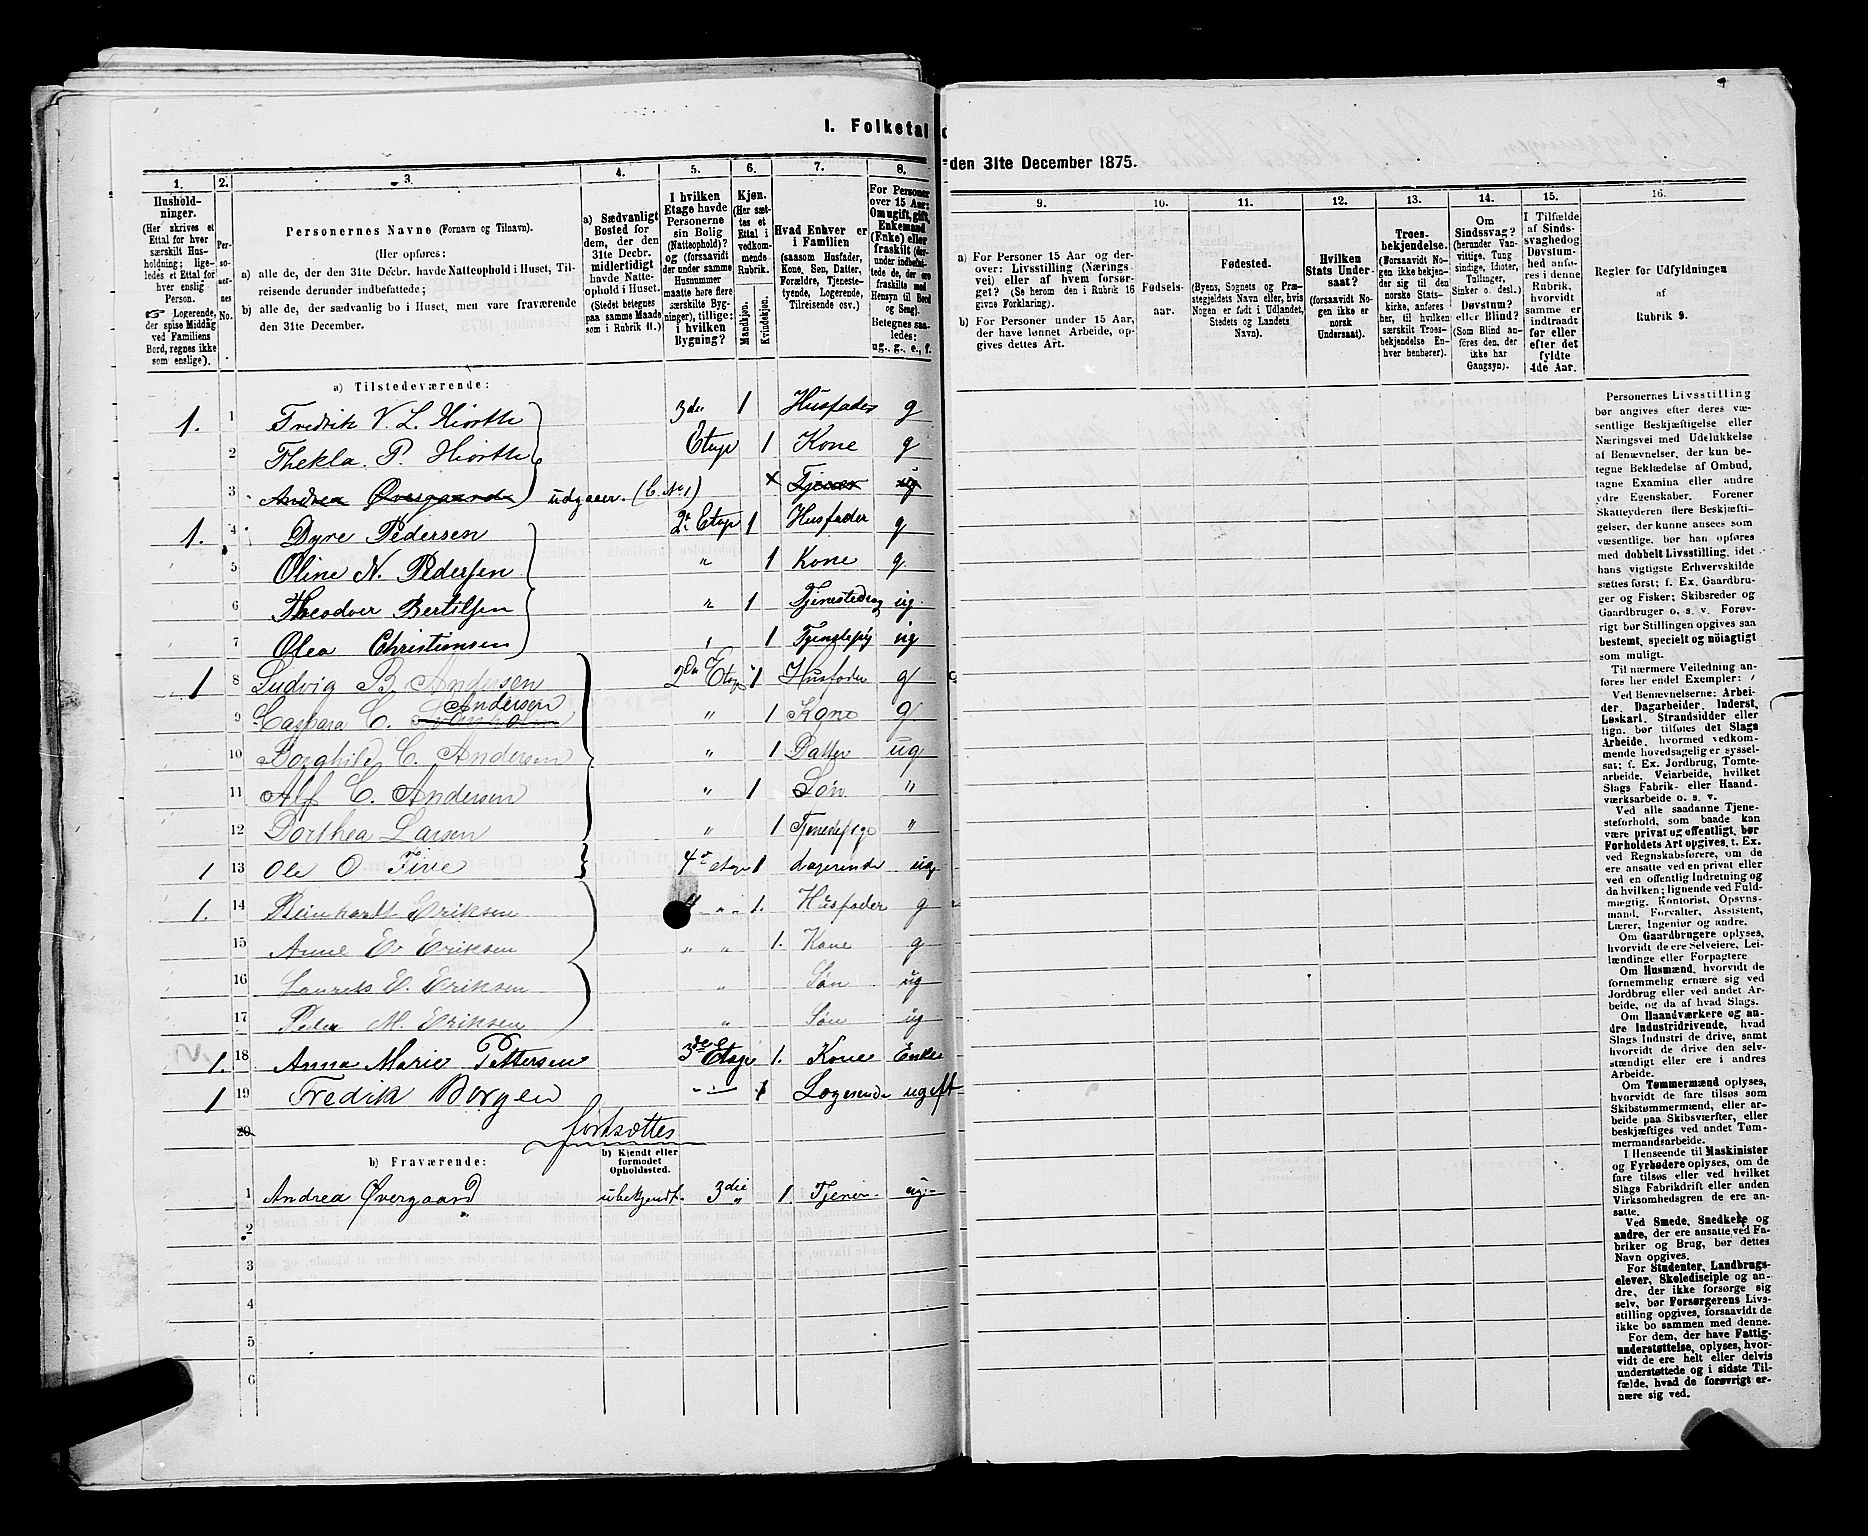 I. Folketal
den 31te December 1875.
1. 2. 3. 4. 5. 6. 7. 8.
Hushold-
ninger.
(Her skrives et
Ettal for hver
særskilt Hus-
holdning; lige-
ledes et Ettal for
hver enslig
Person.
☞ Logerende,
der spise Middag
ved Familiens
Bord, regnes ikke
som enslige).
Per-
so-
ner-
nes
No.
Personernes Navne (Fornavn og Tilnavn).
(Her opføres:
a) alle de, der den 31te Decbr. havde Natteophold i Huset, Til-
reisende derunder indbefattede;
b) alle de, der sædvanlig bo i Huset, men vare fraværende
den 31te December.
a) Sædvanligt
Bosted for
dem, der den
31te Decbr.
midlertidigt
havde Natte-
ophold i Huset.
(Stedet betegnes
paa samme Maade
som i Rubrik 11.)
I hvilken
Etage havde
Personerne
sin Bolig
(Natteophold)?
og (forsaavidt
der under samme
Husnummer
maatte høre flere
særskilte Byg-
ninger), tillige:
i hvilken
Bygning?
Kjøn.
(Her sæt-
tes et
Ettal i
vedkom-
mende
Rubrik.)
Mandkjøn.
Kvindekjøn.
Hvad Enhver er
i Familien
(saasom Husfader,
Kone, Søn, Datter,
Forældre, Tjeneste-
tyende, Logerende,
Tilreisende osv.)
For Personer
over 15 Aar:
Om ugift, gift,
Enkemand
(Enke) eller
fraskilt
Hensyn til Bord
og Seng).
Betegnes saa-
ledes:
ug., g., e., f.
a) Tilstedeværende:
1. 1 Fredrik V. L. Hiorth 3die 1 Husfader g
2 Thekla P. Hiorth Etage 1 Kone g
3 Andrea Øvergaard udgaaer. (C. No 1) x Tjener ug
1. 4 Dyre Pedersen 2. Etage 1 Husfader g
5 Oline N. Pedersen " 1 Kone g.
6 Theodver Bertilsen " 1 Tjenestedrag ug.
7 Olea Christiansen " 1 ug
1 8 Ludvig B. Andersen 2den Etage 1 Husfader g
Andersen
9 Caspara C. " 1 Kone g
10 Borghild C. Andersen " 1 Datter ug
11 Alf C. Andersen " 1 Søn "
12 Dorthea Larsen " 1 "
1 13 Ole O. Five 4d etage 1 Logerende ug
1. 14 Reinhardt Eriksen 4 " " 1. Husfader g
15 Anne E. Eriksen " " 1. Kone g
16 Laurits E. Eriksen " Søn ug
17 Peder M. Eriksen " Søn ug
1. 18 Anna Marie Pettersen 3de Etage 1. Kone Enke
1 19 Fredik Borgen - " - 1 Logerende ugeft
20 fortsættes
b) Fraværende:
b) Kjendt eller
formodet
Opholdssted.
1 Andrea Øvergaard ubekjendt. 3die " 1. Tjener ug.
2
3
4
5
6
9. 10. 11. 12. 13. 14. 15. 16.
a) For Personer 15 Aar og der-
over: Livsstilling (Nærings
vei) eller af hvem forsør-
get? (Se herom den i Rubrik 16
givne Forklaring).
b) For Personer under 15 Aar,
der have lønnet Arbeide, op-
gives dettes Art.
Fødsels-
aar.
Fødested.
(Byens, Sognets og Præ-
stegjeldets Navn eller, hvis
Nogen er født i Udlandet,
Stedets og Landets
Navn).
Hvilken
Stats Under-
saat?
(forsaavidt No-
gen ikke er
norsk
Undersaat).
Troes-
bekjendelse.
(Forsaavidt No-
gen ikke bekjen-
der sig til den
norske Stats-
kirke, anføres
her, til hvilken
særskilt Troes-
bekjendelse En-
hver henhører).
Om
Sindssvag?
(herunder Van-
vittige, Tung
sindige, Idioter,
Tullinger,
Sinker o. desl.)
Døvstum?
eller Blind?
(Som Blind an-
føres den, der
ikke har
Gangsyn).
I Tilfælde
af Sinds-
svaghed og
Døvstum-
hed anfø-
res i denne
Rubrik,
hvorvidt
samme er
indtraadt
før eller
efter det
fyldte
4de Aar.
Regler for Udfyldningen
af
Rubrik 9.
Personernes Livsstilling
bør angives efter deres væ-
sentlige Beskjæftigelse eller
Næringsvei med Udelukkelse
af Benævnelser, der kun be-
tegne Beklædelse af Ombud,
tagne Examina eller andre
ydre Egenskaber. Forener
Skatteyderen flere Beskjæfti-
gelser, der kunne ansees som
væsentlige, bør han opføres
med dobbelt Livsstilling, idet
hans vigtigste Erhvervskilde
sættes først; f. Ex. Gaardbru-
ger og Fisker; Skibsreder og
Gaardbruger o. s. v. Forøv-
rigt bør Stillingen opgives saa
bestemt, specielt og nøiagtigt
som muligt.
Til nærmere Veiledning an-
føres her endel Exempler:
Ved Benævnelserne: Arbei-
der, Dagarbeider, Inderst,
Løskarl, Strandsidder eller
lign. bør tilføies det Slags
Arbeide, hvormed vedkom-
mende hovedsagelig er syssel-
sat; f. Ex. Jordbrug, Tomte-
arbeide, Veiarbeide, hvilket
Slags Fabrik- eller Haand-
værksarbeide o. s. v.
Ved alle saadanne Tjene-
steforhold, som baade kan
være privat og offentligt, bør
Forholdets Art opgives, t. Ex.
ved Regnskabsførere, om de
ere ansatte ved en privat eller
ved en offentlig Indretning og
da hvilken; lignende ved Fuld-
mægtig, Kontorist, Opsyns-
mand, Forvalter, Assistent,
Lærer, Ingeniør og andre.
Om Gaardbrugere oplyses,
hvorvidt de ere Selveiere, Lei-
lændinge eller Forpagtere
Om Husmænd, hvorvidt de
fornemmelig ernære sig ved
Jordbrug eller ved andet Ar-
beide, og da af hvad Slags.
Om Haandværkere og an-
dre Industridrivende, hvad
Slags Industri de drive, samt
hvorvidt de drive den selv-
stændigt eller ere i andres
Arbeide.
Om Tømmermænd oplyses,
hvorvidt de fare tilsøs som
Skibstømmermænd, eller ar-
beide paa Skibsværfter, eller
beskjæftiges ved andet Tøm-
mermandsarbeide.
I Henseende til Maskinister
og Fyrbødere oplyses, om de
fare tilsøs eller ved hvilket
Slags Fabrikdrift eller anden
Virksomhedsgren de ere an-
satte.
Ved Smede, Snedkere og
andre, der ere ansatte ved Fa-
briker og Brug, bør dettes
Navn opgives.
For Studenter, Landbrugs-
elever, Skoledisciple og an-
dre, der ikke forsørge sig
selv, bør Forsørgerens Livs-
stilling opgives, forsaavidt de
ikke bo sammen med denne.
For dem, der have Fattig-
understøttelse, oplyses, hvor-
vidt de ere helt eller delvis
understøttede og i sidste Til-
fælde, hvad de forøvrigt er-
nære sig ved.